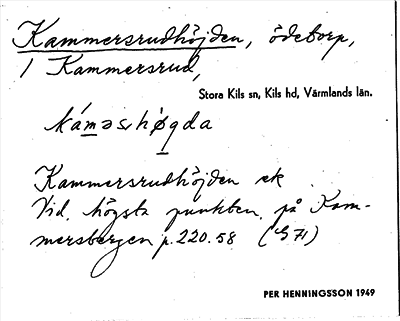 Kammersrudhöjden, ödetorp,
/ Kammersrud,
Stora Kils sn, Kils hd, Värmlands län.
kám̲əsₒhø̲gda
Kammersrudhöjden ek
Vid högsta punkten på Kam-
mersbergen p. 220.58 (G 71)
PER HENNINGSSON 1949